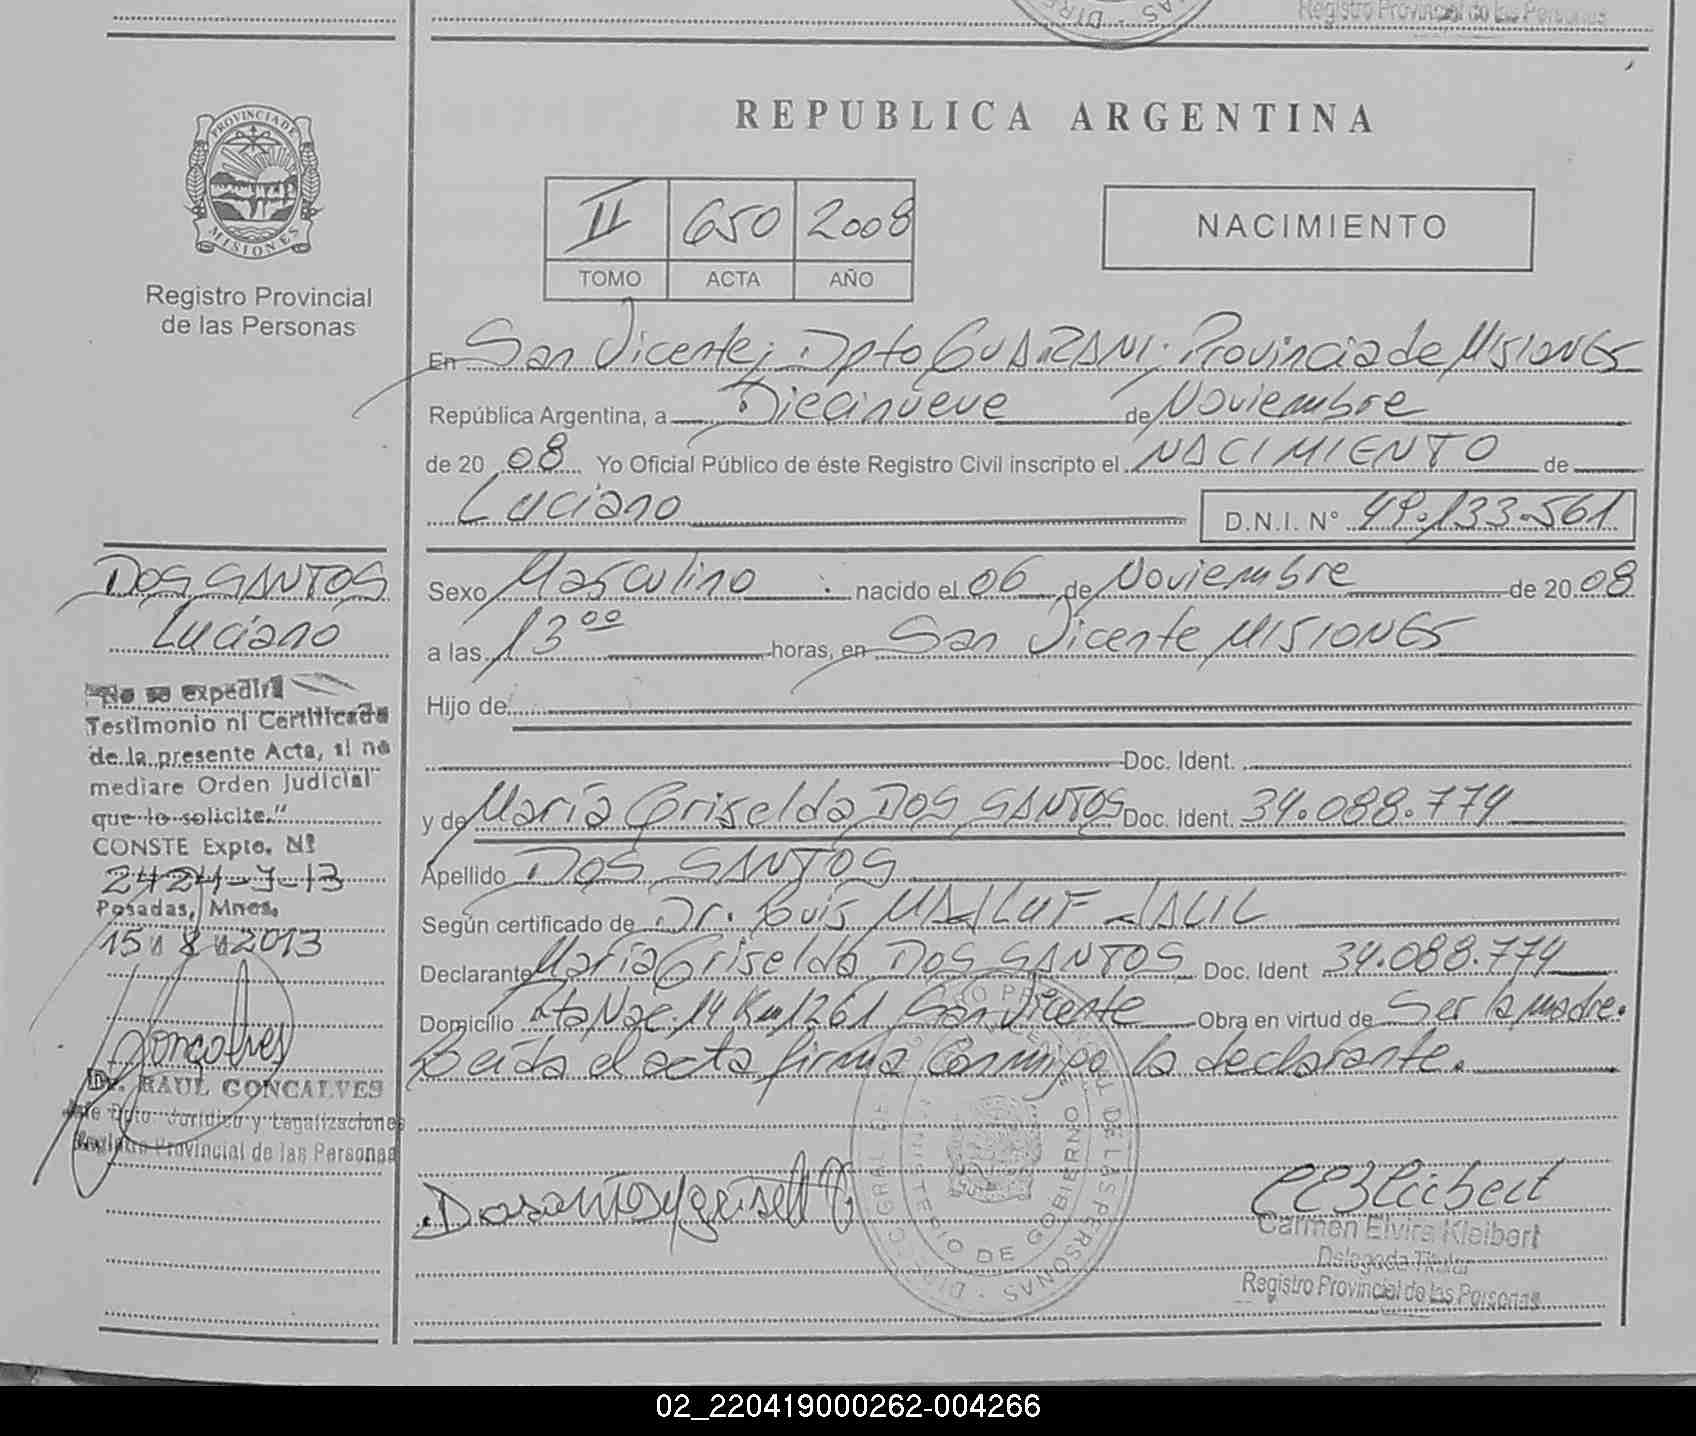 Registro Provincial de las Personas
REPUBLICA ARGENTINA
PROVINCIA DE MISIONES
Registro Provincial
de las Personas
II 650 2008
TOMO ACTA AÑO
NACIMIENTO
En San Vicente; Dpto GUARANI; Provincia de MISIONES
República Argentina, a Diecinueve de Noviembre
de 20 08 Yo Oficial Público de éste Registro Civil inscripto el NACIMIENTO de
Luciano D.N.I. N° 49.133.561
Sexo Masculino nacido el 06 de Noviembre de 20 08
a las 13 00 horas, en San Vicente MISIONES
Hijo de
Doc. Ident.
y de María Griselda DOS SANTOS Doc. Ident. 34.088.774
Apellido DOS SANTOS
Según certificado de Dr. Louis MALLUF JALIL
Declarante María Griselda DOS SANTOS Doc. Ident 34.088.774
Domicilio Rta Nac. 14 Km 1261 San Vicente Obra en virtud de Ser la madre.
Leída el acta firma conmigo la declarante.
DOS SANTOS
Luciano
"No se expedirá
Testimonio ni Certificado
de la presente Acta, si no
mediare Orden Judicial
que lo solicite."
CONSTE Expte. Nº
2424-J-13
Posadas, Mnes.
15 8 2013
Dr. RAUL GONCALVES
Jefe Dpto. Jurídico y Legalizaciones
Registro Provincial de las Personas
MINISTERIO DE GOBIERNO
Carmen Elvira Kleibert
Delegada Titular
Registro Provincial de las Personas
02_220419000262-004266